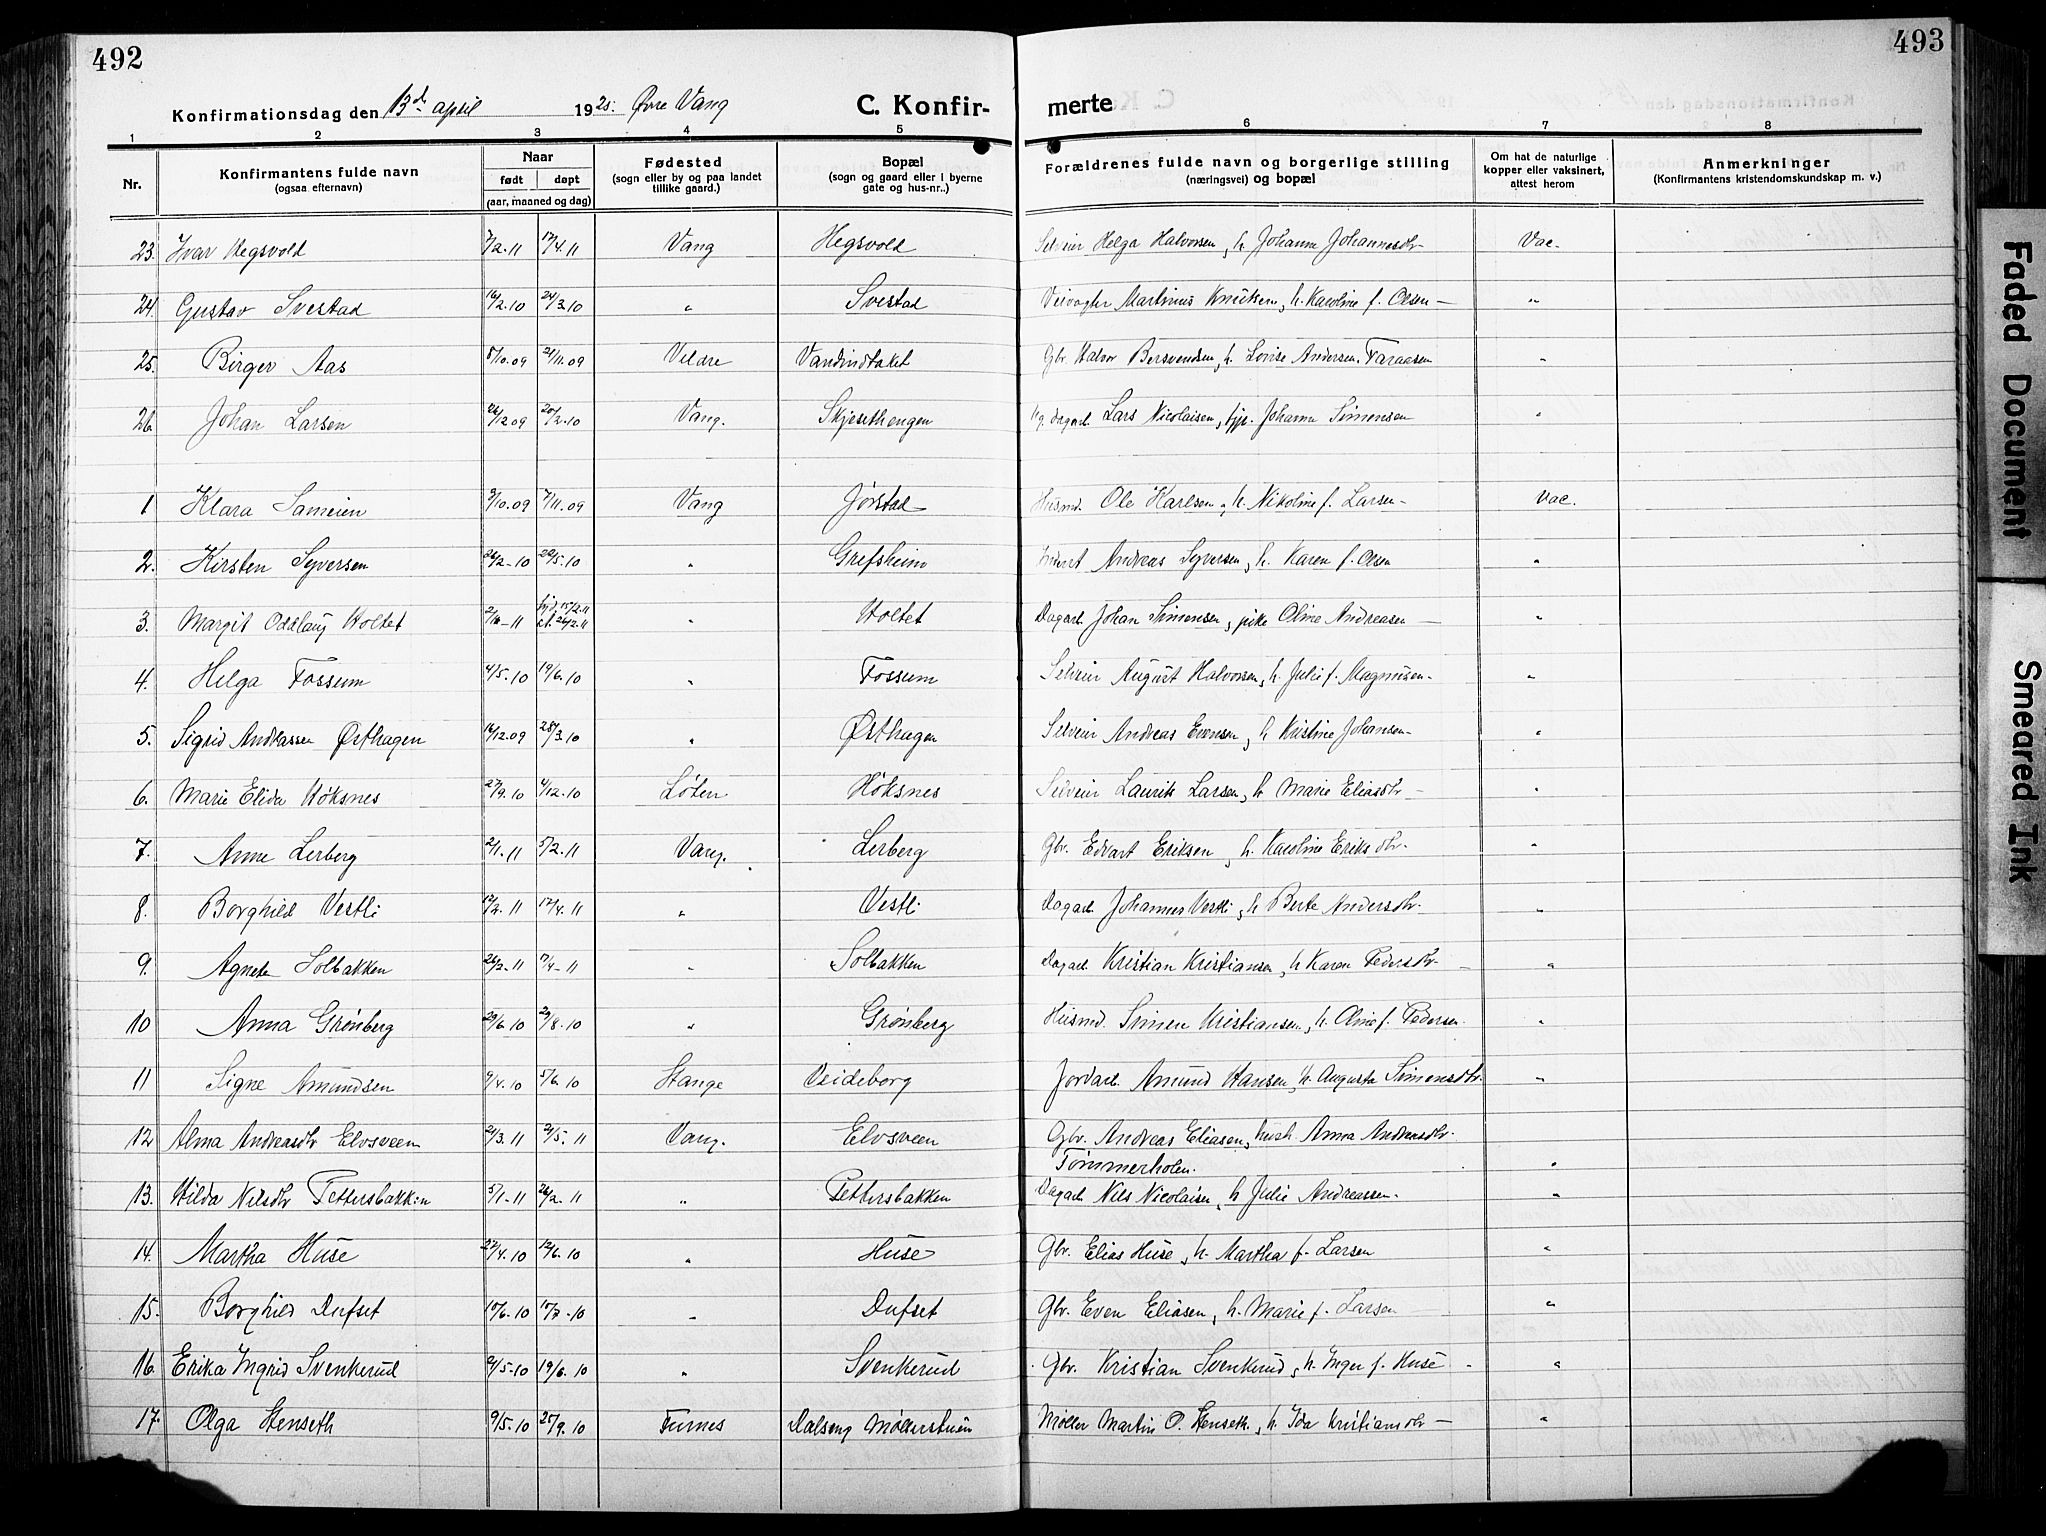 492
493
Konfirmationsdag den 13de april 1925. Øvre Vang C. Konfir-
merte
1 2 3 4 5 6 7 8
Nr. Konfirmantens fulde navn (ogsaa efternavn) Naar født døpt (aar, maaned og dag) Fødested (sogn eller by og paa landet tillike gaard.) Bopæl (sogn og gaard eller i byerne gate og hus-nr..) Forældrenes fulde navn og borgerlige stilling (næringsvei) og bopæl Om hat de naturlige kopper eller vaksinert, attest herom Anmerkninger (Konfirmantens kristendomskundskap m. v.)
23. Ivar Hegsvold 7/2.11 17/4.11 Vang Hegsvold Selveier Helga Halvorsen, h. Johanne Johannesdtr Vac.
24. Gustav Svestad 16/2.10 24/3.10 " Svestad Veivogter Martinus Knutsen, h. Karoline f. Olsen "
25. Birger Aas 5/10.09 21/11.09 Veldre Vandindtaket Gbr. Halvor Bersvendsen, h. Lovise Andersen. Faraasen "
26. Johan Larsen 26/12.09 20/2.10 Vang. Skjesethengen Ug. dagarb. Lars Nicolaisen, pp. Johanne Simensen "
1 Klara Sameien 3/10.09 7/11.09 Vang Jørstad Husmd. Ole Karlsen, h. Nikoline f. Larsen Vac.
2. Kirsten Syversen 26/2-10 22/5.10 " Grefsheim Andreas Syversen, h. Karen f. Olsen "
3. Margit Oddlaug Holtet 2/ -11 hjd. 15/2.11 st. 26/2.11 " Holtet Dagarb. Johan Simensen, pike Oline Andreasen "
4. Helga Fossum 4/5.10 19/6.10 " Fossum Selveier August Halvorsen, h. Julie f. Magnusen "
5. Sigrid Andreassen Østhagen 16/12.09 28/3.10 " Østhagen Selveier Andreas Evensen, h Kristine Johansen "
6. Marie Elida Høksnes 27/9.10 4/12.10 Løten Høksnes Selveier Laurits Larsen, h Marie Eliasdtr "
7. Anne Lerberg 2/1.11 5/2.11 Vang. Lerberg Gbr. Edvart Eriksen, h. Karoline Eriksdtr. "
8. Borghild Vestli 12/2.11 17/4.11 " Vestli Dagarb. Johannes Vestli, h Berte Andersdtr. "
9. Agnete Solbakken 26/2-11 17/4-11 " Solbakken Dagarb. Kristian Kristiansen, h Karen Pedersdtr. "
10 Anna Grønberg 29/6.10 29/8.10 " Grønberg Husmd. Simen Kristiansen, h. Oline f. Pedersen. "
11 Signe Amundsen 9/4.10 5/6.10 Stange Veideborg Jordarb. Amund Hansen, h. Augusta Simensdtr. "
12 Alma Andreasdtr Elvsveen 21/3.11 21/5.11 Vang. Elvsveen Gbr. Andreas Eliasen, hush. Anna Andreasdtr.
Tømmerholen. "
13. Hilda Nilsdtr Pettersbakken 5/1-11 26/2.11 " Pettersbakken Dagarb. Nils Nicolaisen, h Julie Andreassen. "
14. Martha Huse 27/4.10 12/6.10 " Huse Gbr. Elias Huse, h. Martha f. Larsen "
15. Borghild Dufset 10/6.10 17/7.10 " Dufset Gbr. Even Eliasen, h. Marie f. Larsen "
16. Erika Ingrid Svenkerud 9/5.10 19/6.10 " Svenkerud Gbr. Kristian Svenkerud, h. Inger f. Huse "
17. Olga Stenseth 9/5.10 25/9.10 Furnes Dalseng Møllerstuen Møller Martin O. Stenseth, h. Ida Kristiansdtr "
Faded Document
Smeared Ink